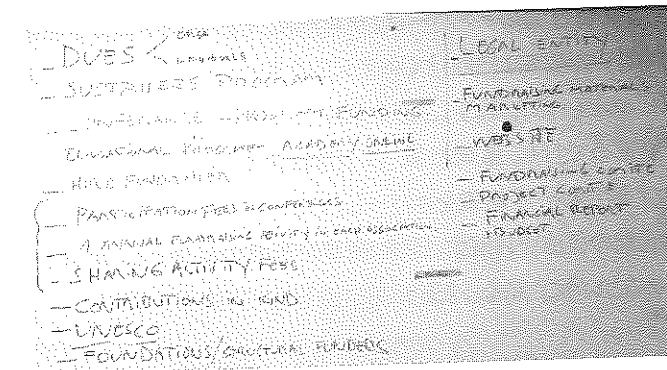 — DUES <
ORGS
— SUSTAINERS PROGRAM
PROJECT FUNDING
EDUCATIONAL PROGRAM - ACADEMY ONLINE
— HIRE FUNDRAISER
— PARTICIPATION FEES IN CONFERENCES
— 1 ANNUAL FUNDRAISING ACTIVITY IN EACH ASSOCIATION
— SHARING ACTIVITY FEES
— CONTRIBUTIONS IN KIND
— UNESCO
— FOUNDATIONS/STRUCTURAL FUNDERS
— LEGAL ENTITY
— FUNDRAISING MATERIALS
MARKETING
— WEBSITE
— FUNDRAISING COMTEE
— PROJECT COMTEE
— FINANCIAL REPORT
BUDGET